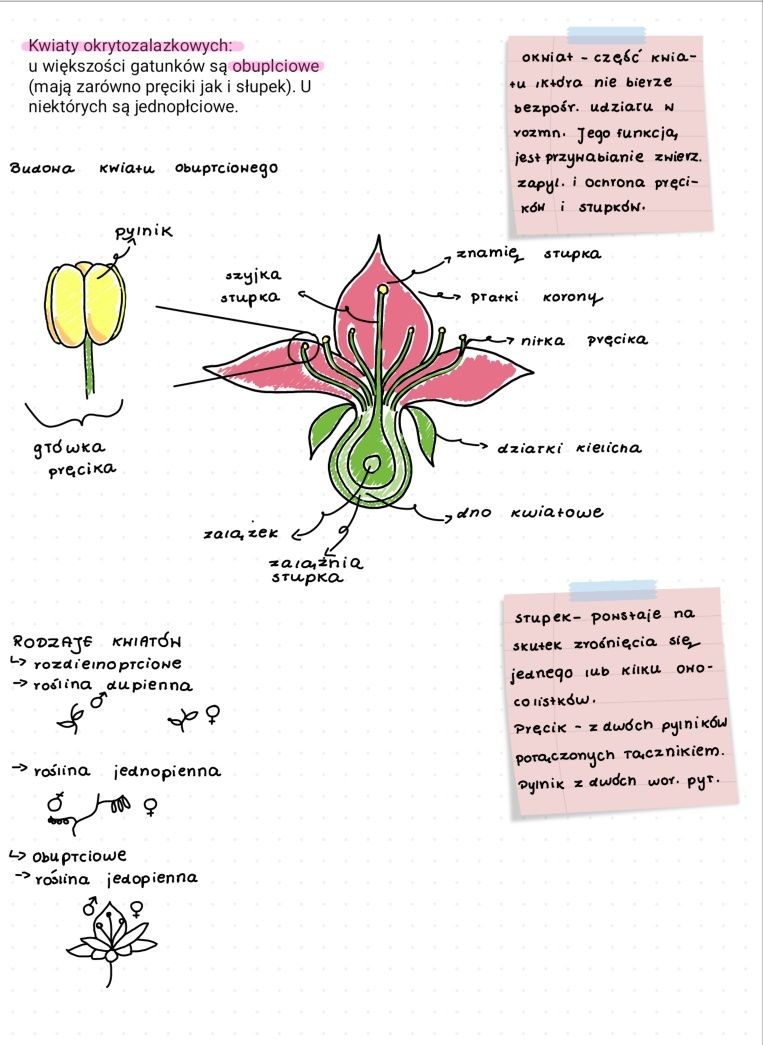 Kwiaty okrytozalazkowych:
u większości gatunków są obuplciowe
(mają zarówno pręciki jak i słupek). U
niektórych są jednopłciowe.
okwiat - część kwia-
tu ,która nie bierze
bezpośr. udziału w
rozmn. Jego funkcją
jest przywabianie zwierz.
zapyl. i ochrona pręci-
ków i słupków.
Budowa kwiatu obupłciowego
pylnik
szyjka
słupka
znamię słupka
płatki korony
nitka pręcika
główka
pręcika
działki kielicha
dno kwiatowe
zalążek
zalążnia
słupka
RODZAJE KWIATÓW
↳ rozdielnopłciowe
→ roślina dupienna
♂ ♀
→ roślina jednopienna
♂ ♀
↳ obupłciowe
→ roślina jedopienna
♂ ♀
słupek- powstaje na
skutek zrośnięcia się
jednego lub kilku owo-
colistków.
Pręcik - z dwóch pylników
połączonych łącznikiem.
Pylnik z dwóch wor. pył.